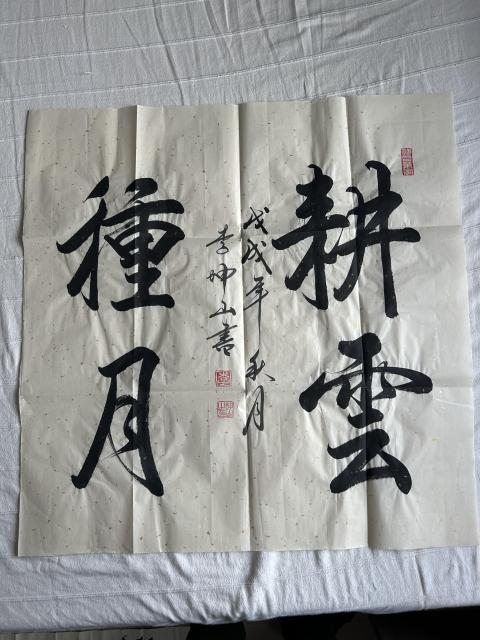 耕雲
種月
戊戌年秋月
李坤山書